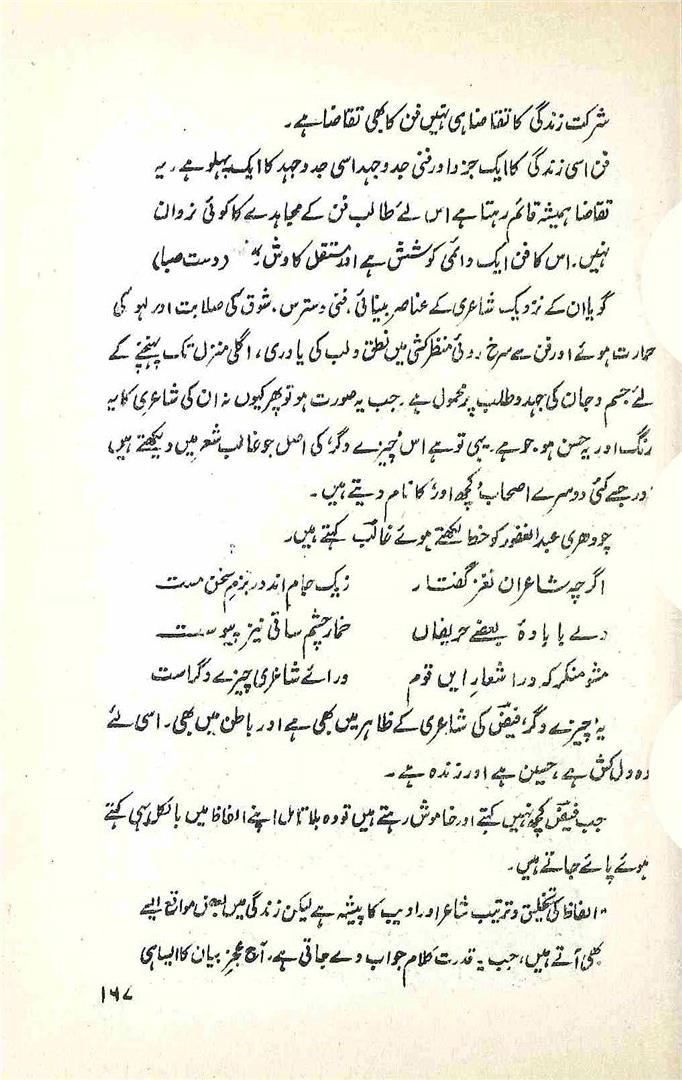 شرکت زندگی کا تقاضا ہی نہیں فن کا بھی تقاضا ہے۔
فن اسی زندگی کا ایک جزو اور فنی جدوجہد اسی جدوجہد کا ایک پہلو ہے۔ یہ
تقاضا ہمیشہ قائم رہتا ہے اس لئے طالب فن کے مجاہدے کا کوئی نروان
نہیں۔ اس کا فن ایک دائمی کوشش ہے اور مستقل کاوش؛" (دست صبا)
گویا ان کے نزدیک شاعری کے عناصر بینائی، فنی دسترس، شوق کی صلابت اور لہو کی
حرارت ہوئے اور فن سے سرخ روئی منظر کشی میں نطق و لب کی یاوری، اگلی منزل تک پہنچنے کے
لئے جسم و جان کی جہد و طلب پر محمول ہے۔ جب یہ صورت ہو تو پھر کیوں نہ ان کی شاعری کا یہ
رنگ اور یہ حسن ہو۔ جو ہے۔ یہی تو ہے اس 'چیزے دگر' کی اصل جو غالب شعر میں دیکھتے ہیں
اور جسے کئی دوسرے اصحاب 'کچھ اور' کا نام دیتے ہیں۔
چودھری عبدالغفور کو خط لکھتے ہوئے غالب کہتے ہیں۔
اگرچہ شاعران نغز گفتار زیک جام اند در بزم سخن مست
ولے با بادۂ بعضے حریفاں خمار چشم ساقی نیز پیوست
مشو منکر کہ در اشعار ایں قوم ورائے شاعری چیزے دگر است
یہ 'چیزے دگر' فیضؔ کی شاعری کے ظاہر میں بھی ہے اور باطن میں بھی۔ اسی لئے
وہ دل کش ہے، حسین ہے اور زندہ ہے۔
جب فیضؔ کچھ نہیں کہتے اور خاموش رہتے ہیں تو وہ بلا تامل اپنے الفاظ میں بالکل یہی کہتے
ہوئے پائے جاتے ہیں۔
"الفاظ کی تخلیق و ترتیب شاعر اور ادیب کا پیشہ ہے لیکن زندگی میں بعض مواقع ایسے
بھی آتے ہیں، جب یہ قدرت کلام جواب دے جاتی ہے، آج عجز بیان کا ایسا ہی
۱۶۷